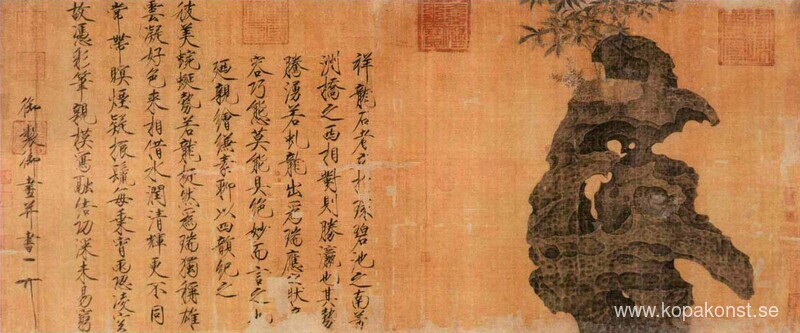 祥龍石者立於環碧池之南芳
洲橋之西相對則勝瀛也其勢
騰湧若虬龍出為瑞應之狀奇
容巧態莫能具絕妙而言之也
廼親繪縑素聊以四韻紀之
彼美蜿蜒勢若龍挺然為瑞獨稱雄
雲凝好色來相借水潤清輝更不同
常帶暝煙疑振鬣每乘宵雨恐凌空
故憑彩筆親模寫融結功深未易窮
御製御畫并書
www.kopakonst.se